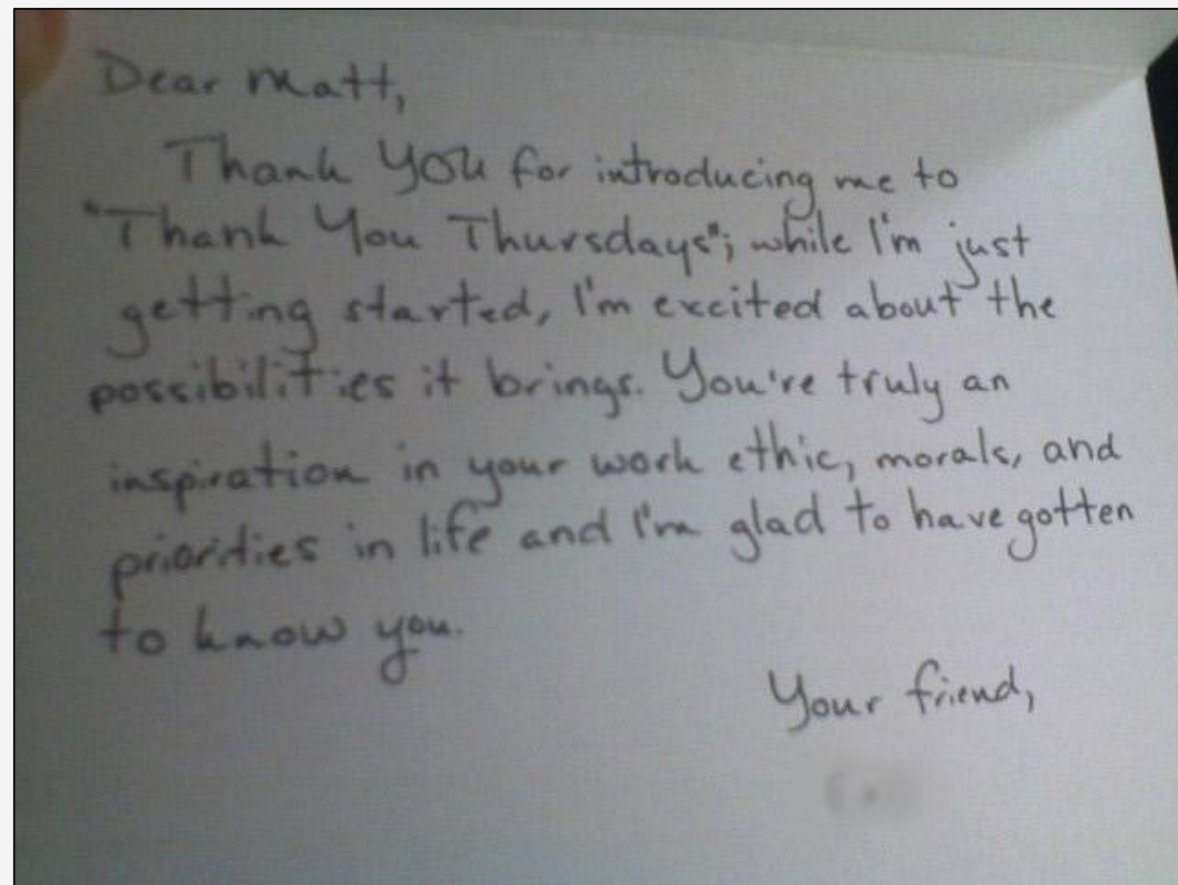 Dear Matt,
Thank YOU for introducing me to
"Thank You Thursdays"; while I'm just
getting started, I'm excited about the
possibilities it brings. You're truly an
inspiration in your work ethic, morals, and
priorities in life and I'm glad to have gotten
to know you.
Your friend,